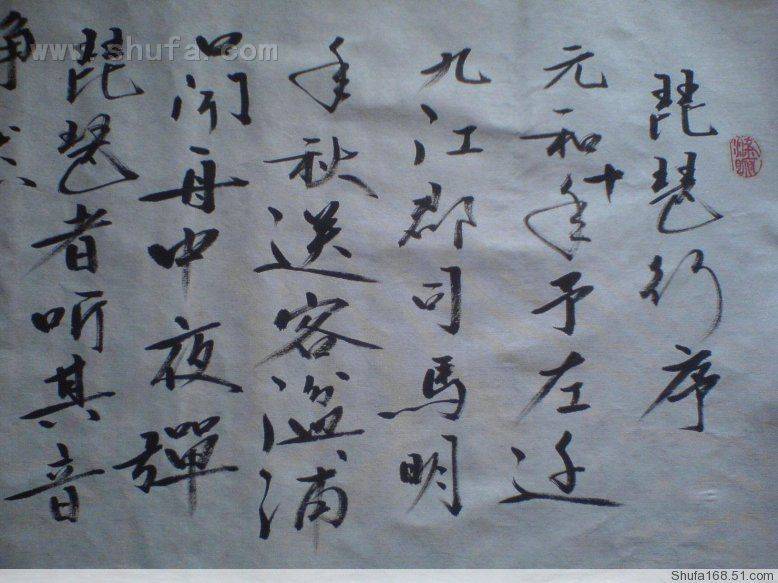 琵琶行序
元和十年予左迁
九江郡司马明
年秋送客湓浦
口闻舟中夜彈
琵琶者听其音
铮
www.shufa.com
Shufa168.51.com